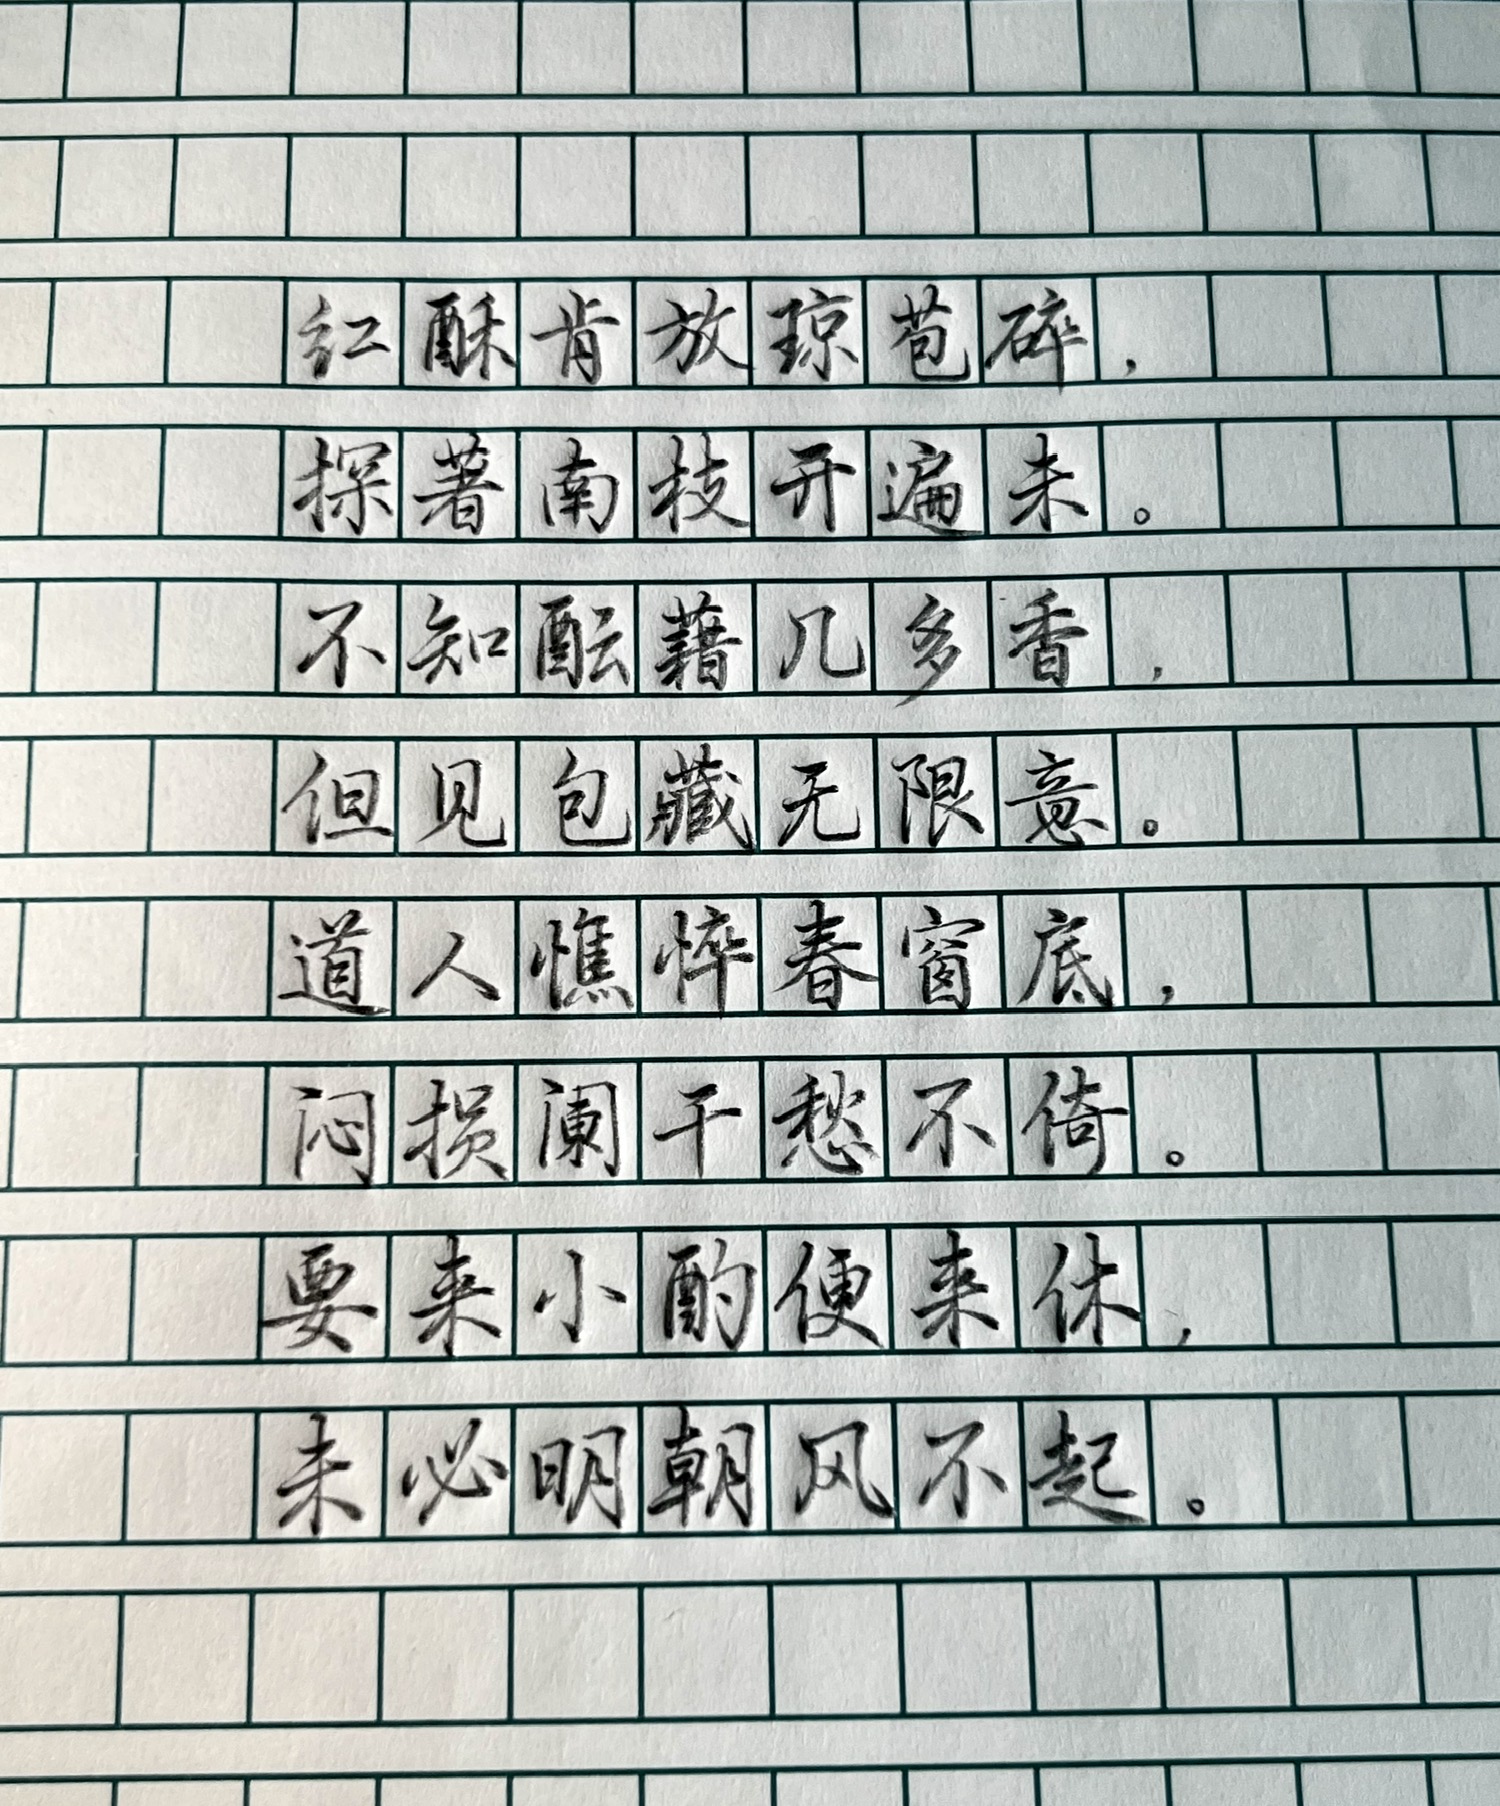 红酥肯放琼苞碎，
探著南枝开遍未。
不知酝藉几多香，
但见包藏无限意。
道人憔悴春窗底，
闷损阑干愁不倚。
要来小酌便来休，
未必明朝风不起。